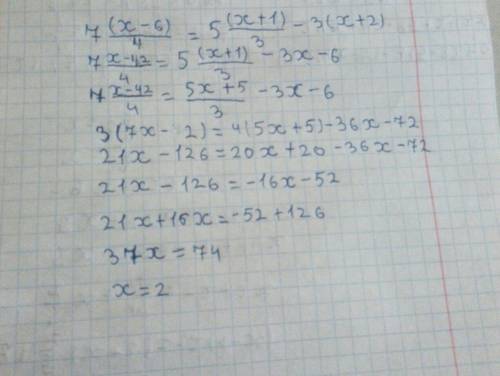 7(x-6)/4 = 5(x+1)/3 - 3(x+2)
7x-42/4 = 5(x+1)/3 - 3x-6
7x-42/4 = 5x+5/3 - 3x-6
3(7x- 2)=4(5x+5)-36x-72
21x-126=20x+20-36x-72
21x-126=-16x-52
21x+16x=-52+126
37x=74
x=2